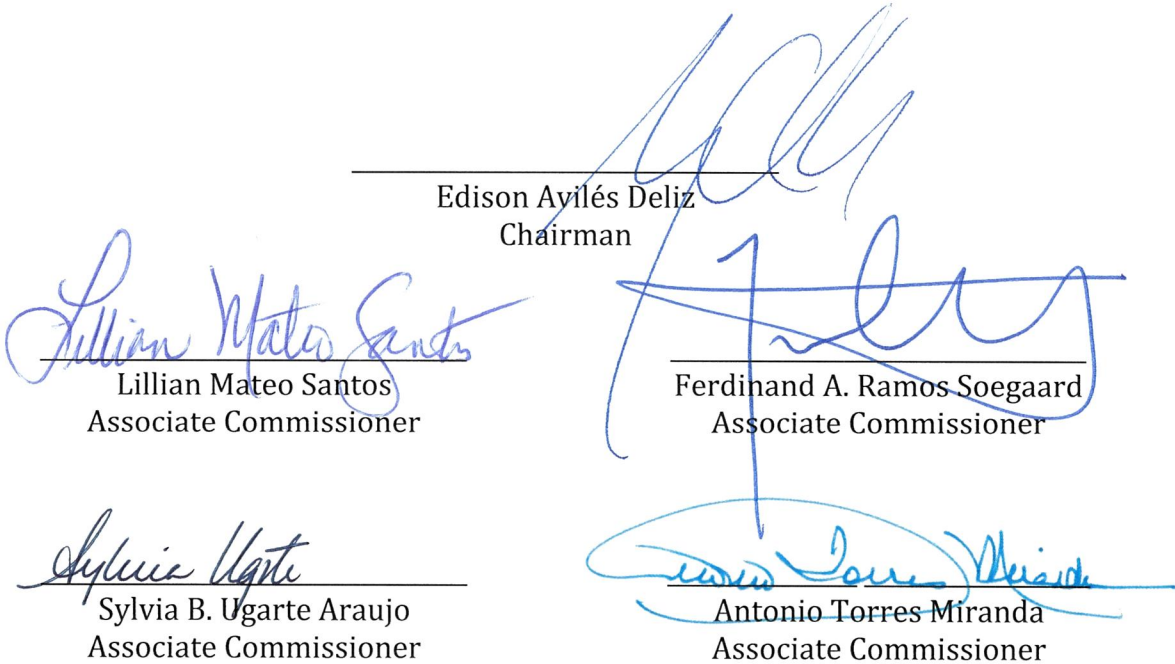 Edison Avilés Deliz
Chairman
Lillian Mateo Santos
Lillian Mateo Santos
Associate Commissioner
Ferdinand A. Ramos Soegaard
Associate Commissioner
Sylvia Ugarte
Sylvia B. Ugarte Araujo
Associate Commissioner
Torres Miranda
Antonio Torres Miranda
Associate Commissioner